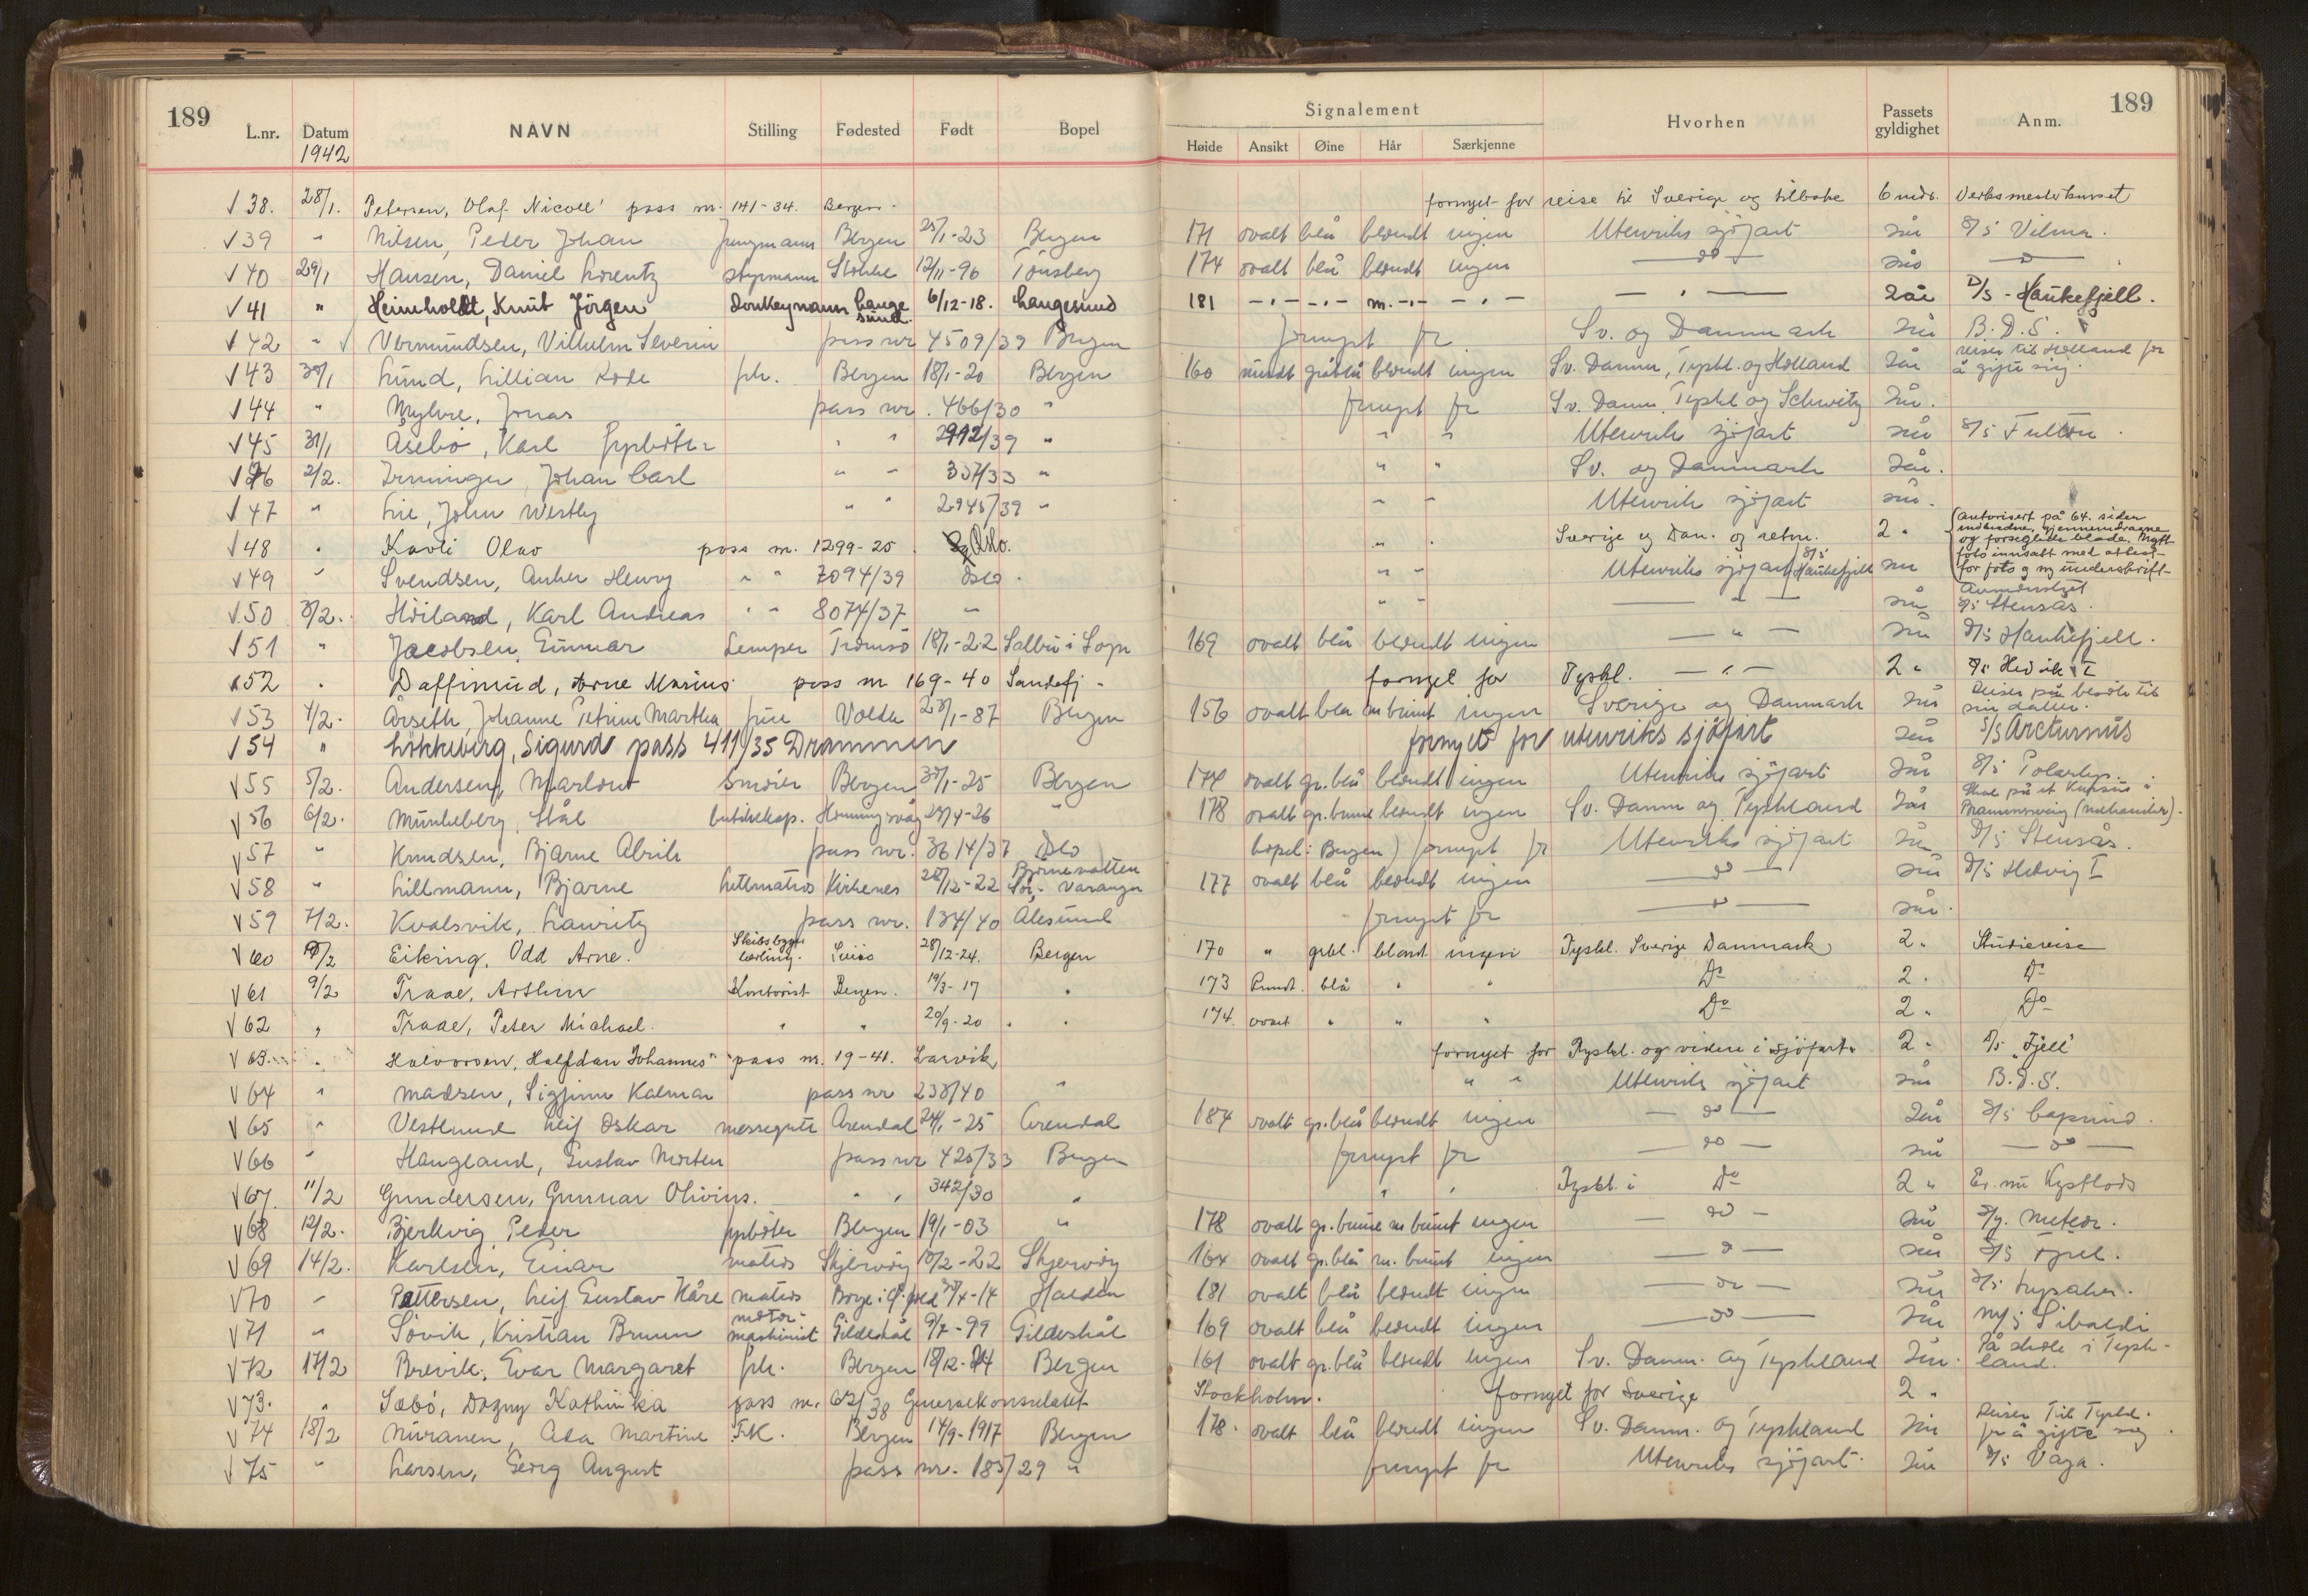 189
L.nr. Datum NAVN Stilling Fødested Født Bopel
1942
Signalement Hvorhen Passets gyldighet Anm. 189
Høide Ansikt Øine Hår Særkjenne
38. 28/1. Petersen, Olaf Nicolé pass nr. 141-34. Bergen. fornyet for reise til Sverige og tilbake 6 mdr. Verksmesterkurset
39 " Nilsen, Peder Johan jungmann Bergen 25/1-23 Bergen 171 ovalt blå blondt ingen Utenriks sjöfart 2 år S/S Vilma.
40 29/1 Hansen, Daniel Lorentz styrmann Stokke 12/11-96 Tönsberg 174 ovalt blå blondt ingen — do — 2 år — " —
41 " Heimholdt, Knut Jörgen donkeymann Langesund 6/12-18. Langesund 181 -"- -"- m. -"- -"- — " — 2 år D/S - Haukefjell.
42 " Vermundsen, Vilhelm Severin pass nr 4509/39 Bergen fornyet for Sv. og Danmark 2 år B.D.S.
43 30/1 Lund, Lillian Rode frk. Bergen 18/1-20 Bergen 160 rundt gråblå blondt ingen Sv. Danm, Tyskl. og Holland 2 år reiser til Holland for å gifte sig.
44 " Myhre, Jonas pass nr. 466/30 " fornyet for Sv. Danm. Tyskl og Schweitz 2 år.
45 31/1 Åsebö, Karl fyrböter " " 2992/39 " " " Utenriks sjöfart 2 år S/S Fulton.
46 2/2. Irminger, Johan Carl " " 337/33 " " " Sv. og Danmark 2 år.
47 " Lie, John Westby " " 2945/39 " " " Utenriks sjöfart 2 år.
48 " Kavli Olav pass nr. 1299-25. Oslo. " " Sverige og Dan. og retur. 2 " (autorisert på 64. sider innbundne, gjennemdragne og forseglede blade. Nytt foto innsatt med attest for foto og ny underskrift
49 " Svendsen, Anker Henry " " 7094/39 Oslo. " " Utenriks sjöfart S/S Haukefjell 2 år
50 3/2. Höiland, Karl Andreas " " 8074/37 " " " — " — 2 år S/S Stensås.
51 " Jacobsen, Einnar Lemper Tromsö 18/1-22 Salbu i Sogn 169 ovalt blå blondt ingen — " — 2 år D/S Haukefjell.
52 " Daffinrud, Arne Marius pass nr 169-40 Sandefj. fornyet for Tyskl. — " — 2 " D/S Hedvik I
53 4/2. Årseth, Johanne Petrine Martha frue Volda 23/1-87 Bergen 156 ovalt blå m brunt ingen Sverige og Danmark 2 år Reiser på besök til sin datter.
54 " Lökkeberg, Sigurd pass 411/35 Drammen fornyet for utenriks sjöfart 2 år S/S Arcturnus
55 5/2. Andersen, Marlow smörer Bergen 30/1-25 Bergen 174 ovalt gr.blå blondt ingen Utenriks sjöfart 2 år S/S Polarlys.
56 6/2. Munkeberg, Stål butikkeksp. Honningsvåg 28/4-26 " 178 ovalt gr.brune blondt ingen Sv. Danm og Tyskland 2 år Skal på et kursus i Braunsweig (mekaniker).
57 " Knudsen, Bjarne Alrik pass nr. 3614/37 Oslo bopel: Bergen) fornyet for Utenriks sjöfart 2 år D/S Stensås.
58 " Lillmann, Bjarne lettmatros Kirkenes 28/12-22 Björnevatten Sör-Varanger 177 ovalt blå blondt ingen — do — 2 år D/S Hedvig I
59 7/2. Kvalsvik, Lauritz pass nr. 134/40 Ålesund fornyet for — do — 2 år.
60 9/2 Eiking, Odd Arne. Skibsbygger lærling. 28/12-24. Bergen 170 " grbl. blond ingen Tyskl. Sverige Danmark 2 " Studiereise
61 9/2 Traae, Arthur Kontorist Bergen. 19/3-17 " 173 Rundt. blå " " Do 2 " Do
62 " Traae, Peter Michael. " " 20/9-20 " 174. ovalt " " " Do 2 " Do
63. " Halvorsen, Halfdan Johannes pass nr. 19-41. Larvik fornyet for Tyskl. og videre i sjöfart. 2 " D/S "Fjell"
64 " Madsen, Sigfinn Kalmar pass nr 238/40 " " " Utenriks sjöfart 2 år B.D.S.
65 " Vestlund Leif Oskar messegutt Arendal 24/1-25 Arendal 187 ovalt gr.blå blondt ingen — do — 2 år
66 " Haugland, Gustav Morten pass nr 425/33 Bergen fornyet for — do — 2 år — do —
67. 11/2 Gundersen, Gunnar Olivius. " " 342/30 " " " Tyskl. i Do 2 " Er nu Kystlods
68 12/2. Bjerkvig, Peder fyrböter Bergen 19/1-03 " 178 ovalt gr.brune m brunt ingen — do — 2 år Meteor.
69 14/2. Karlsen, Einar matros Skjervöy 10/2-22 Skjervöy 164 ovalt gr.blå m. brunt ingen — do — 2 år
70 " Pettersen, Leif Gustav Kåre matros Borge i Ö.fold 30/4-14 Halden 181 ovalt blå blondt ingen — do — 2 år D/S Lysaker.
71 " Sövik, Kristian Bruun motor-maskinist Gildeskål 9/7-99 Gildeskål 169 ovalt blå blondt ingen — do — 2 år M/S Sibaldi
72 17/2 Brevik, Evar Margaret frk. Bergen 18/12-24 Bergen 161 ovalt gr.blå blondt ingen Sv. Danm. og Tyskland 2 år. På skole i Tyskland.
73. " Sæbö, Dagny Kathinka pass nr. 62/38 Generalkonsulatet Stockholm. fornyet for Sverige 2 "
74 18/2 Muranen, Ada Martine Frk. Bergen 14/9-1917 Bergen 178. ovalt blå blondt ingen Sv. Danm. og Tyskland 2 år Reiser til Tyskl. for å gifte sig.
75 " Larsen, Georg August pass nr. 183/29 " fornyet for Utenriks sjöfart 2 år D/S Vaga.